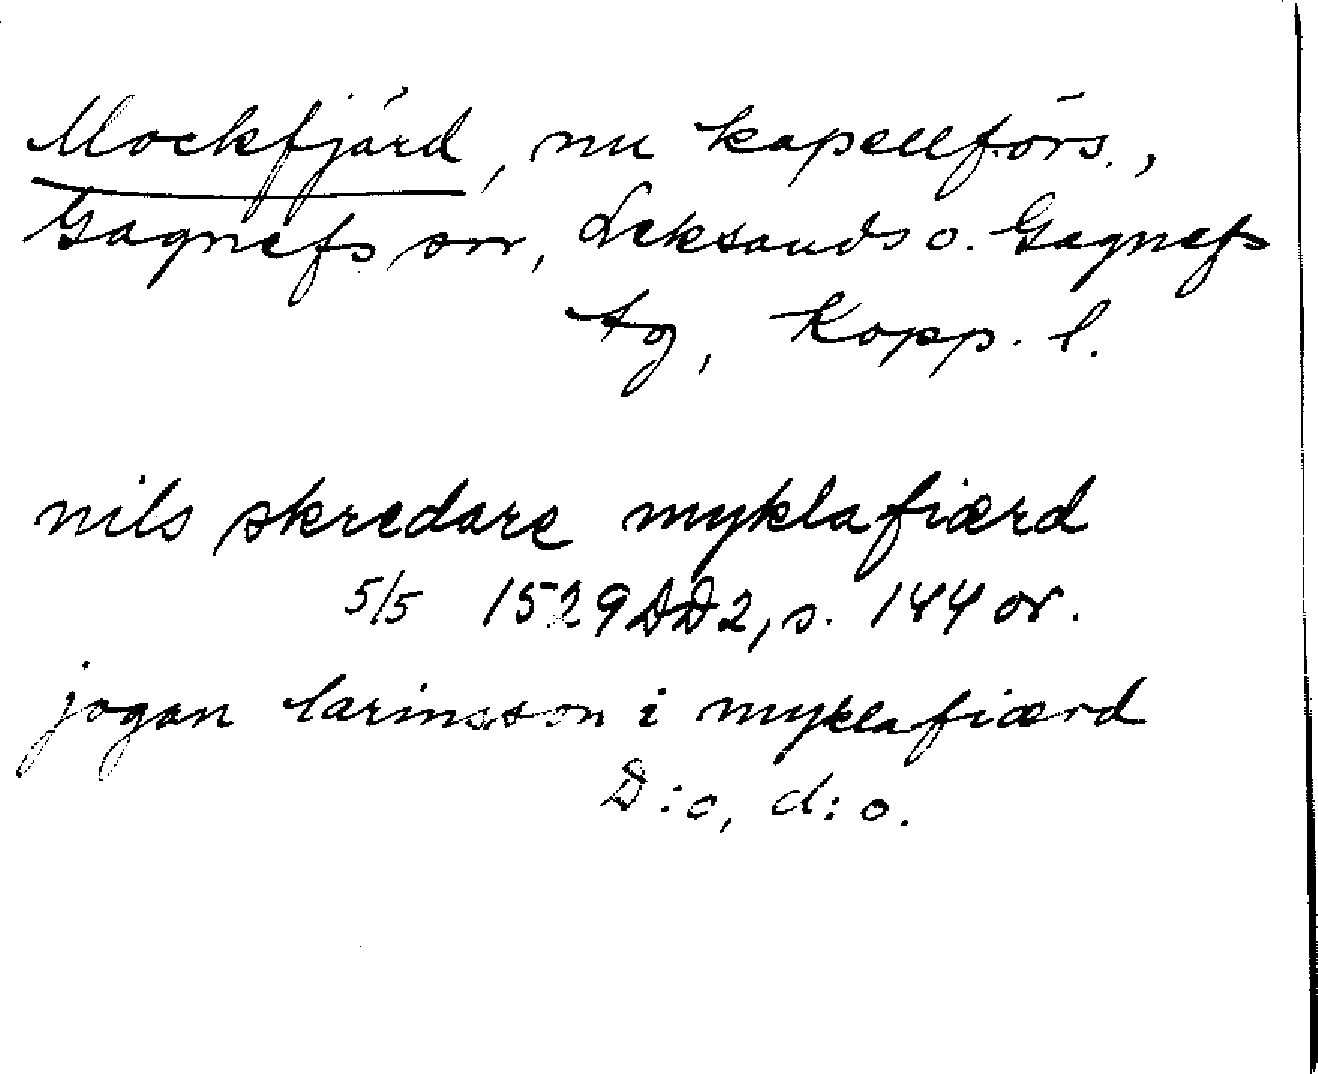 Mockfjärd, nu kapellförs.,
Gagnefs sn, Leksands o. Gagnefs
tg, Kopp. l.
nils skredare myklafiærd
5/5 1529 DD2, s. 144 or.
jogan larinsson i myklafiærd
D:o, d:o.